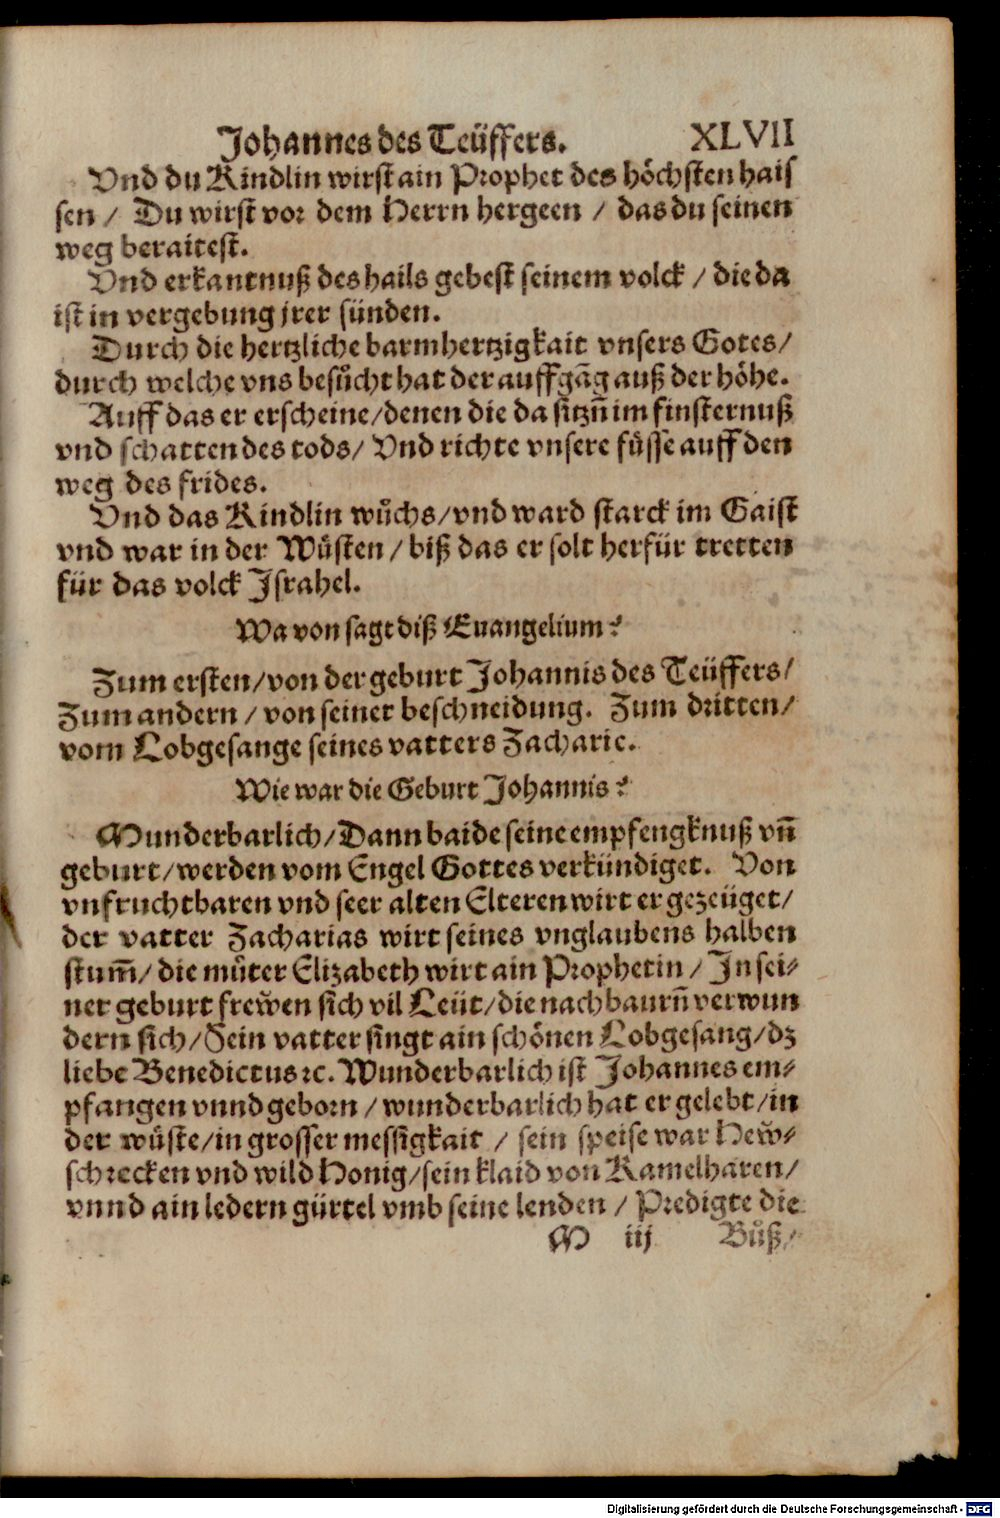 Johannes des Teüffers. XLVII
Vnd du Kindlin wirst ain Prophet des höchsten hais
sen / Du wirst vor dem Herrn hergeen / das du seinen
weg beraitest.
Vnd erkantnuß des hails gebest seinem volck / die da
ist in vergebung jrer sünden.
Durch die hertzliche barmhertzigkait vnsers Gotes/
durch welche vns besuͦcht hat der auffgãg auß der höhe.
Auff das er erscheine/denen die da sitzñ im finsternuß
vnd schatten des tods/ Vnd richte vnsere füsse auff den
weg des frides.
Vnd das Kindlin wuͦchs/vnd ward starck im Gaist
vnd war in der Wüsten / biß das er solt herfür tretten
für das volck Israhel.
Wa von sagt diß Euangelium?
Zum ersten/von der geburt Johannis des Teüffers/
Zum andern / von seiner beschneidung. Zum dritten/
vom Lobgesange seines vatters Zacharie.
Wie war die Geburt Johannis?
Wunderbarlich/Dann baide seine empfengknuß vñ
geburt/werden vom Engel Gottes verkündiget. Von
vnfruchtbaren vnd seer alten Elteren wirt er gezeüget/
der vatter Zacharias wirt seines vnglaubens halben
stum̃/ die muͦter Elizabeth wirt ain Prophetin / In sei⸗
ner geburt frewͤen sich vil Leüt/die nachbaurñ verwun
dern sich/Sein vatter singt ain schönen Lobgesang/dz
liebe Benedictus ꝛc. Wunderbarlich ist Johannes em⸗
pfangen vnnd geborn / wunderbarlich hat er gelebt/in
der wüste/in grosser messigkait / sein speise war Hewͤ⸗
schrecken vnd wild Honig/sein klaid von Kamelharen/
vnnd ain ledern gürtel vmb seine lenden / Predigte die
M iij Buͦß/
Digitalisierung gefördert durch die Deutsche Forschungsgemeinschaft - DFG